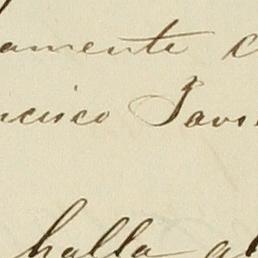 amente c
ncisco Javi
halla al